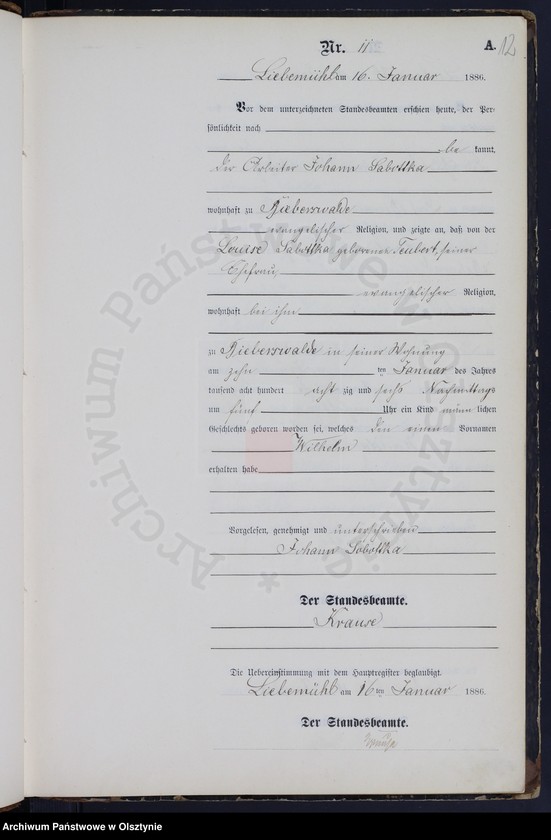 Nr. 11
A.
12
Liebemühl am 16. Januar 1886.
Vor dem unterzeichneten Standesbeamten erschien heute, der Per-
sönlichkeit nach
be kannt,
der Arbeiter Johann Sabottka
wohnhaft zu Bieberswalde
evangelischer Religion, und zeigte an, daß von der
Louise Sabottka geborenen Teubert, seiner
Ehefrau,
evangelischer Religion,
wohnhaft bei ihm
zu Bieberswalde in seiner Wohnung
am zehn ten Januar des Jahres
tausend acht hundert acht zig und sechs Nachmittags
um fünf Uhr ein Kind männ lichen
Geschlechts geboren worden sei, welches den einen Vornamen
Wilhelm
erhalten habe
Vorgelesen, genehmigt und unterschrieben
Johann Sobottka
Der Standesbeamte.
Krause
Die Uebereinstimmung mit dem Hauptregister beglaubigt.
Liebemühl am 16 ten Januar 1886.
Der Standesbeamte.
Krause
Archiwum Państwowe w Olsztynie *
Archiwum Państwowe w Olsztynie